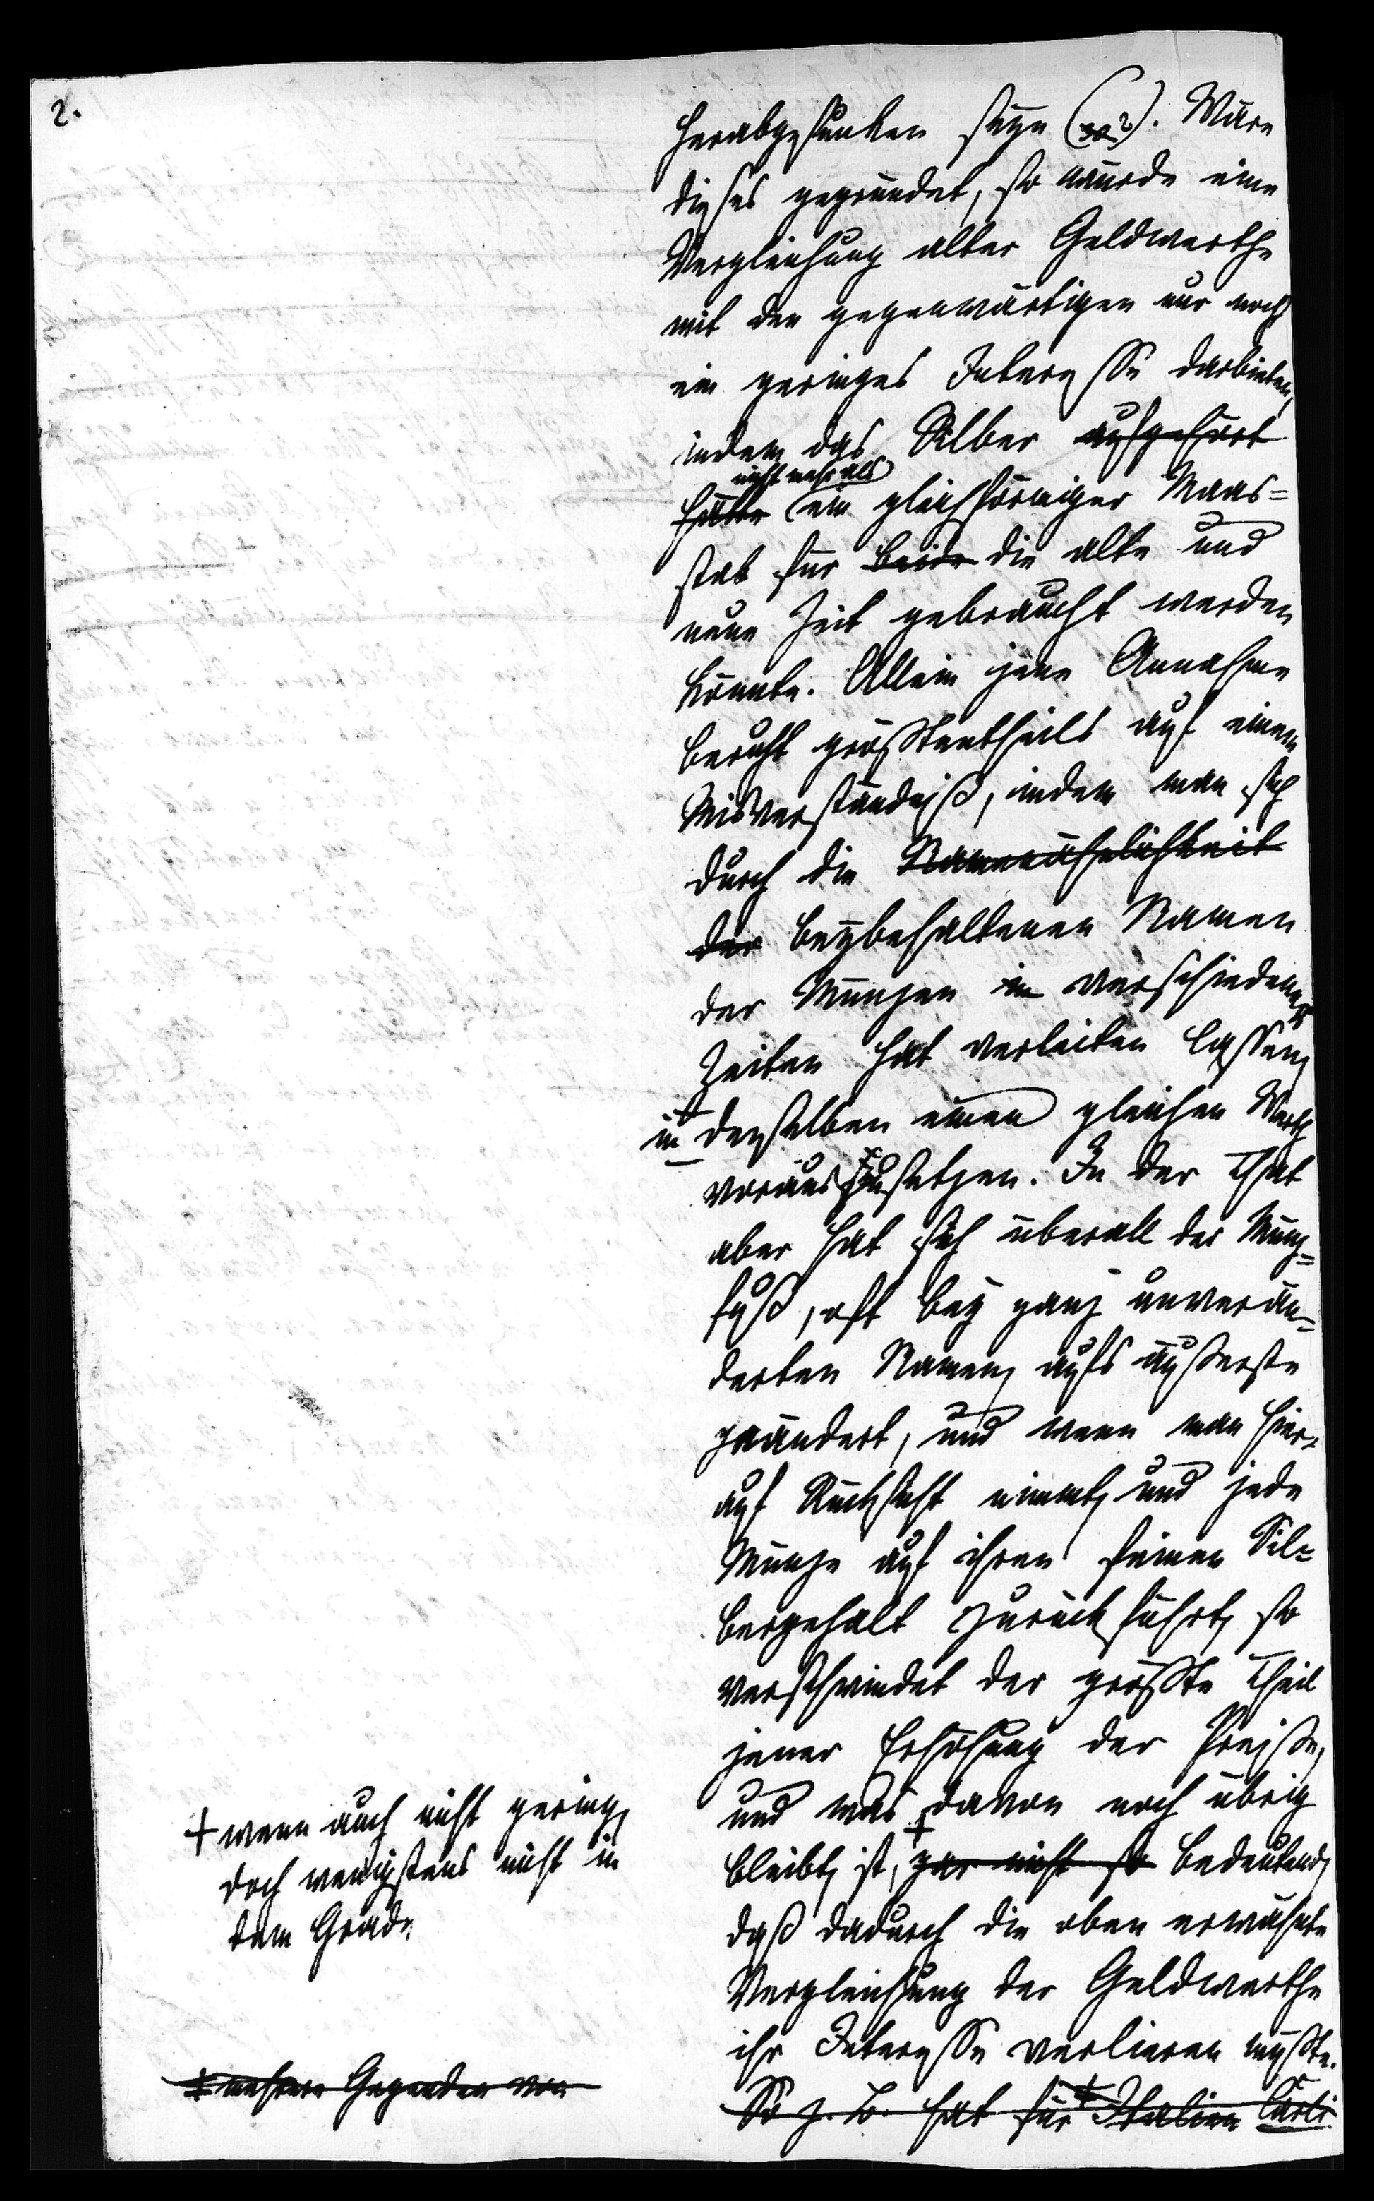 2.
herabgesunken seyn (2). Wäre
dieses gegründet, so würde eine
Vergleichung alter Geldwerthe
mit den gegenwärtigen nur noch
ein geringes Interesse darbieten,
indem das Silber aufgehört
nicht mehr als
hätte ein gleichförmiger Maas=
stab für beide die alte und
neue Zeit gebraucht werden
könnte. Allein jene Annahme
beruht größtentheils auf einem
Misverständniß, indem man sich
durch die Namensähnlichkeit
der beybehaltenen Namen
der Münzen in verschiedenen
Zeiten hat verleiten lassen,
in denselben einen gleichen Werth
vorauszusetzen. In der That
aber hat sich überall der Münz=
fuß, oft bey ganz unverän=
derten Namen, aufs äußerste
geändert, und wenn man hier=
auf Rücksicht nimmt, und jede
Münze auf ihren feinen Sil=
bergehalt zurück führt, so
verschwindet der größte Theil
jener Erhöhung der Preise,
und was davon noch übrig
bleibt, ist, + gar nicht so bedeutend,
daß dadurch die oben erwähnte
Vergleichung der Geldwerthe
ihr Interesse verlieren müßte.
So z. B. hat für + Italien Carli
+ wenn auch nicht gering,
doch wenigstens nicht in
dem Grade
+ mehrere Gegenden von